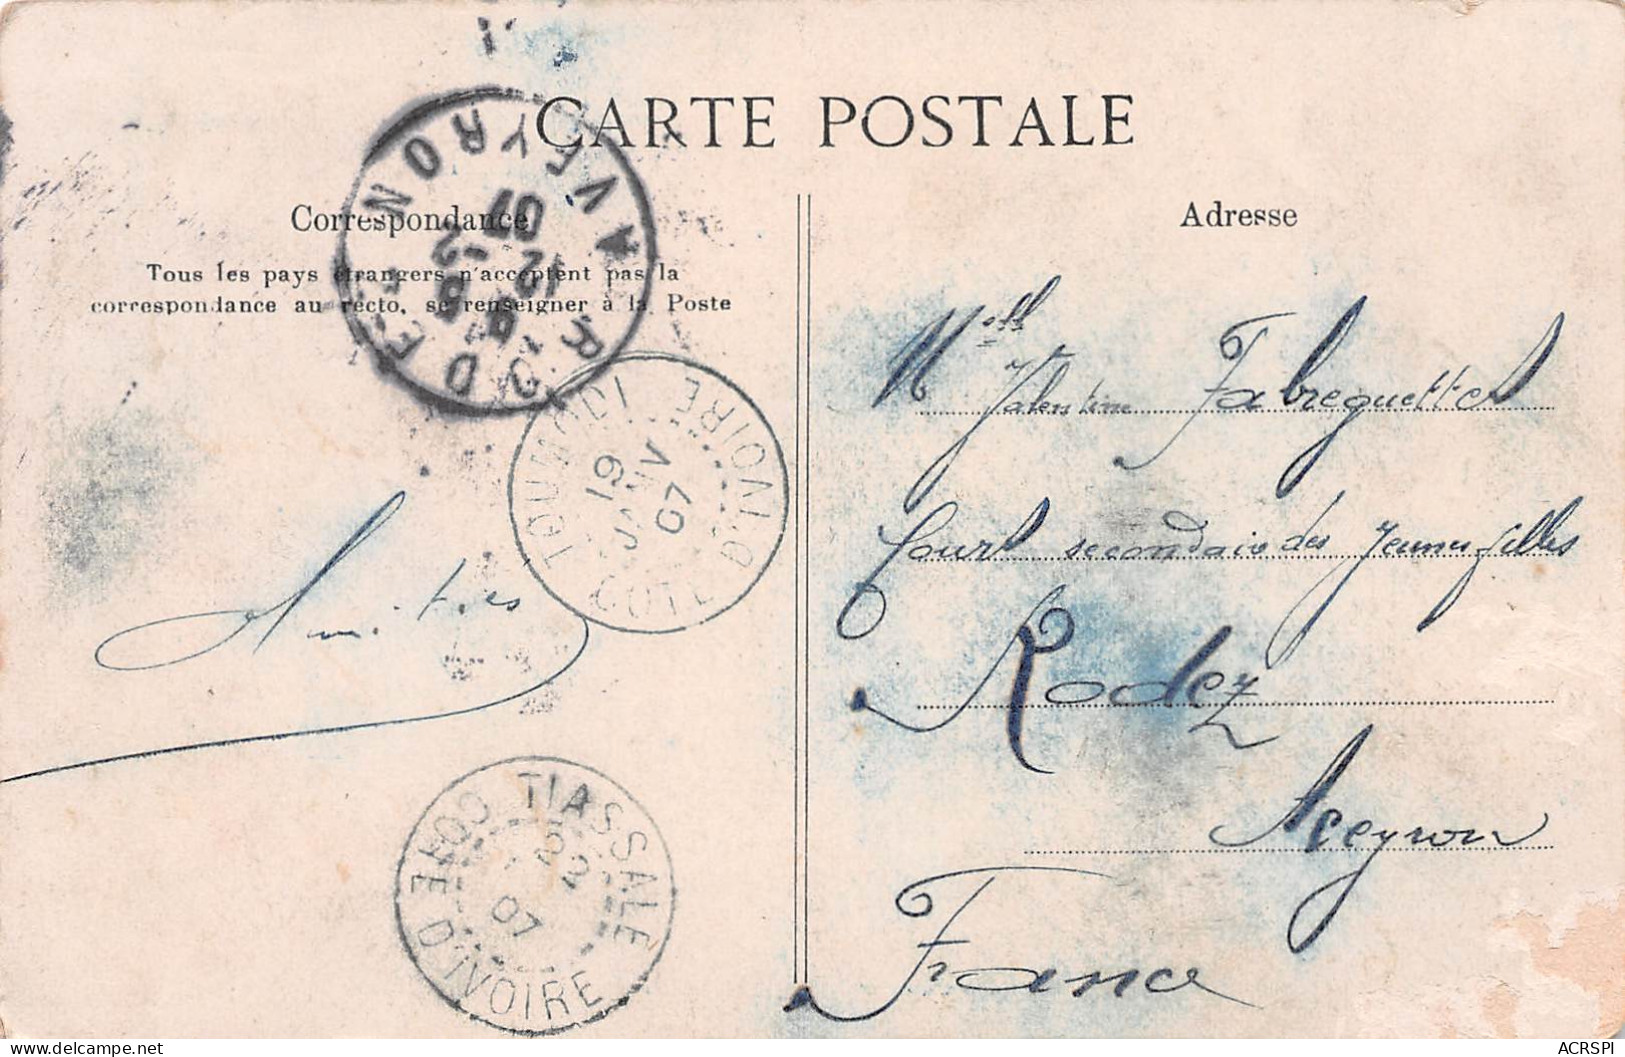 CARTE POSTALE
Correspondance
Tous les pays étrangers n'acceptent pas la
correspondance au recto, se renseigner à la Poste
Adresse
RODEZ
AVEYRON
12 -2
07
TOUMODI
COTE D'IVOIRE
19
JANV
07
Amitiés
TIASSALÉ
COTE D'IVOIRE
22
07
Melle
Valentine Fabreguettes
Cours secondaire des Jeunes filles
Rodez
Aveyron
France
delcampe.net
ACRSPI